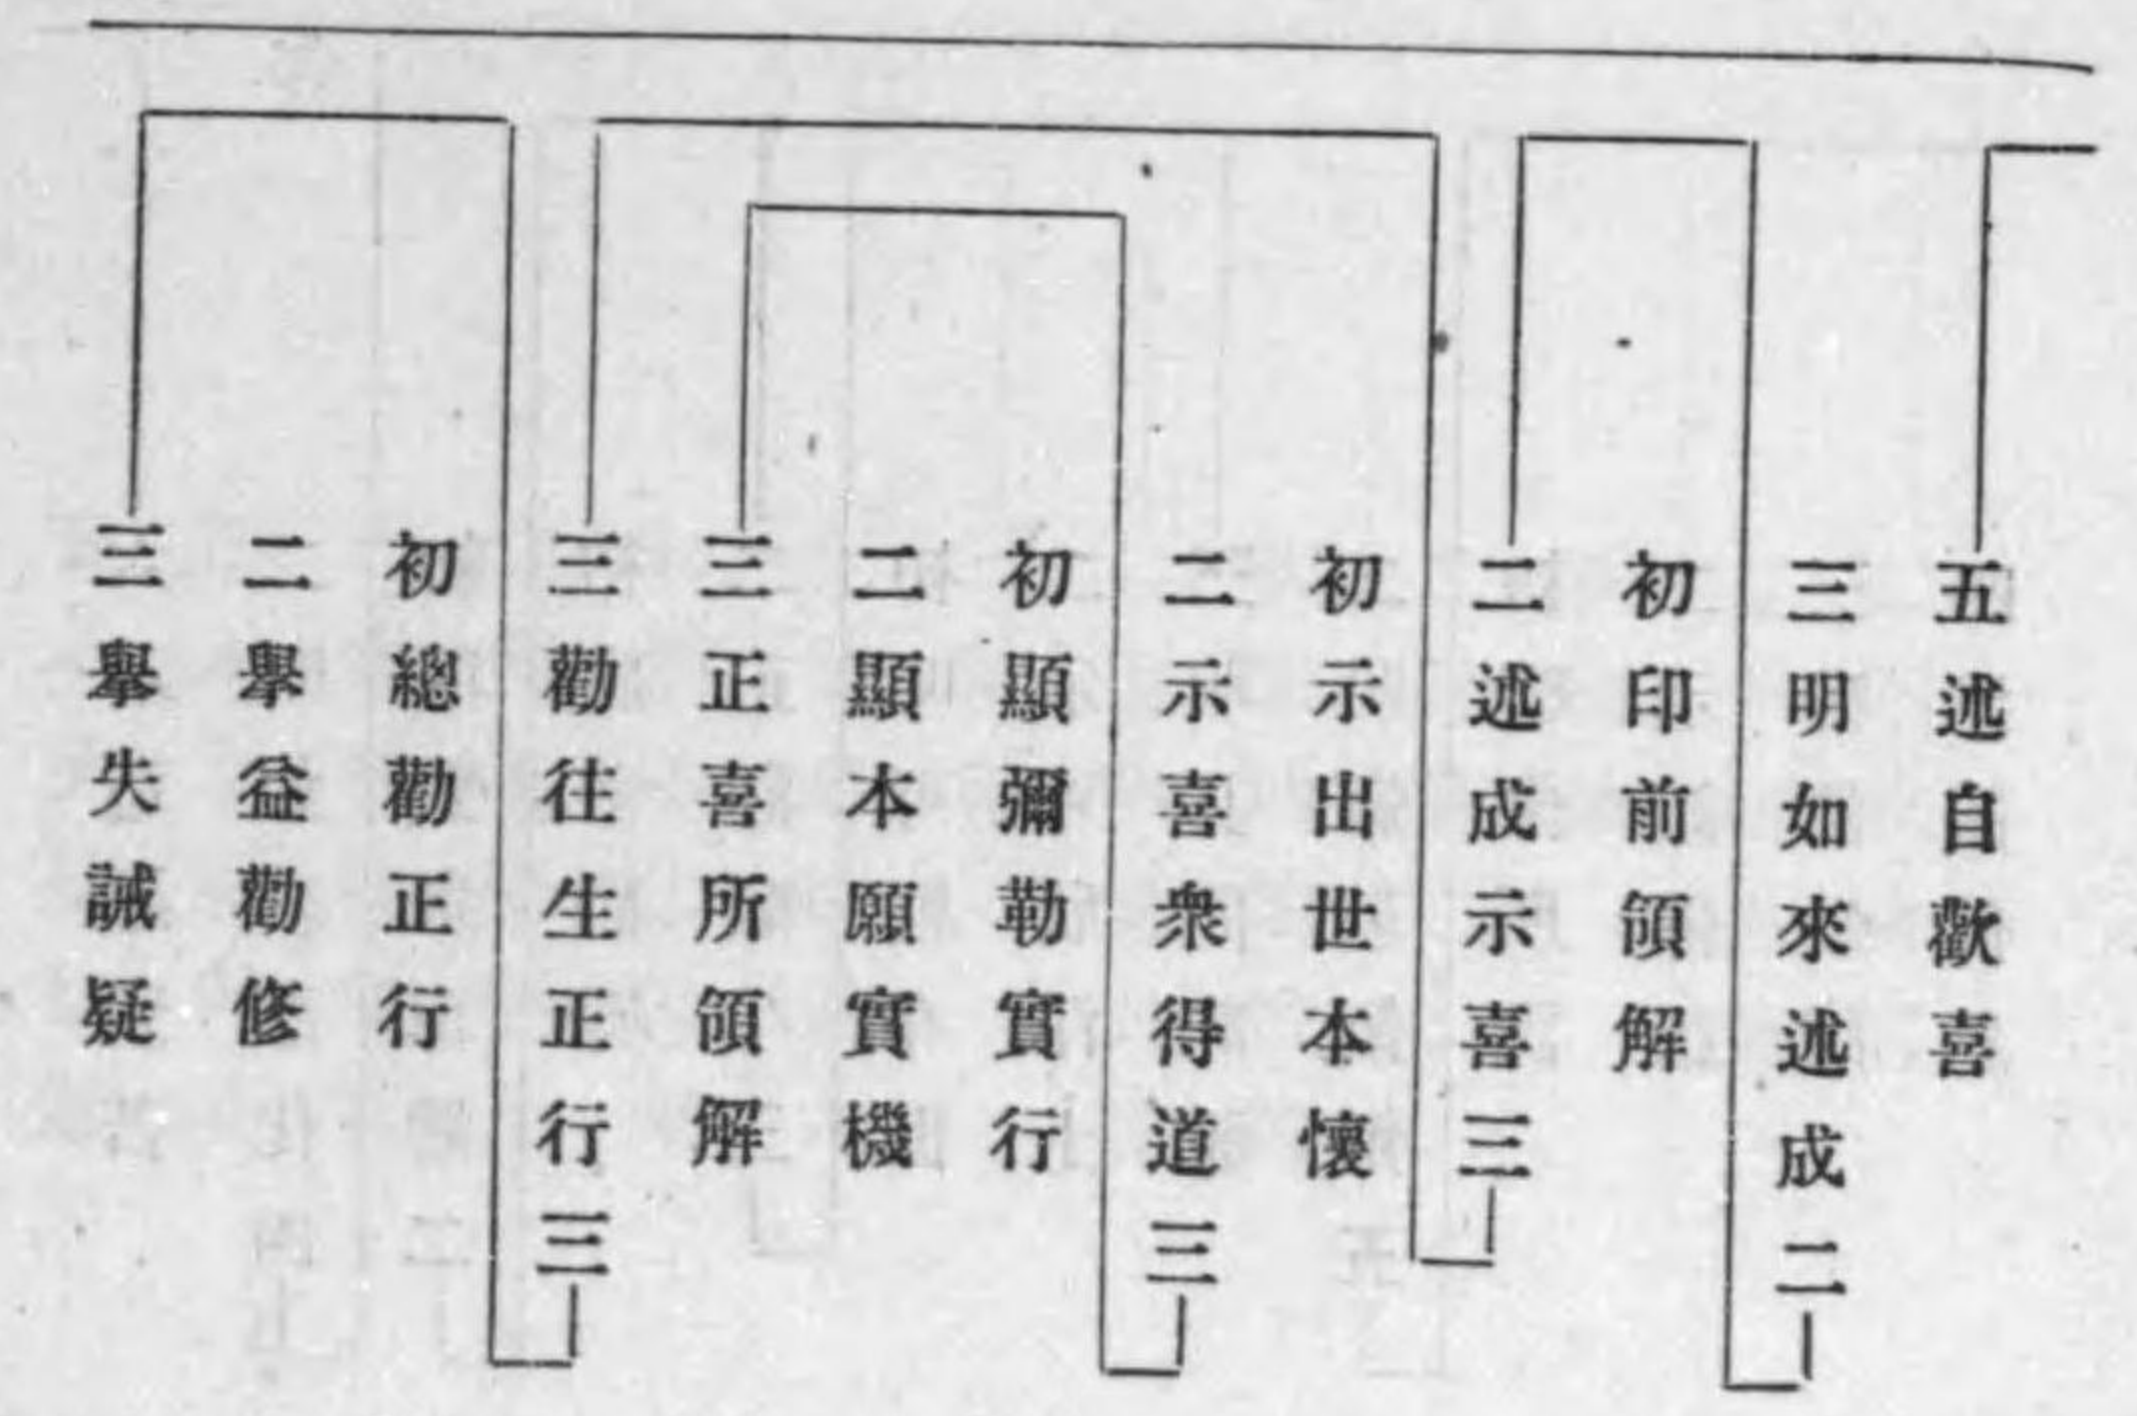 五述自歡喜
三明如來述成二
初印前領解
二述成示喜三
初示出世本懷
二示喜衆得道三
初顯彌勒實行
二顯本願實機
三正喜所領解
三勸往生正行三
初總勸正行
二擧益勸修
三擧失誡疑